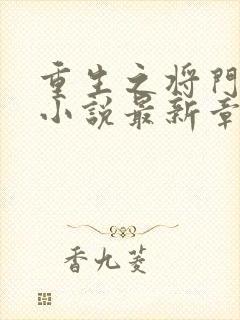 重生之将門
小說最新章
香九菱